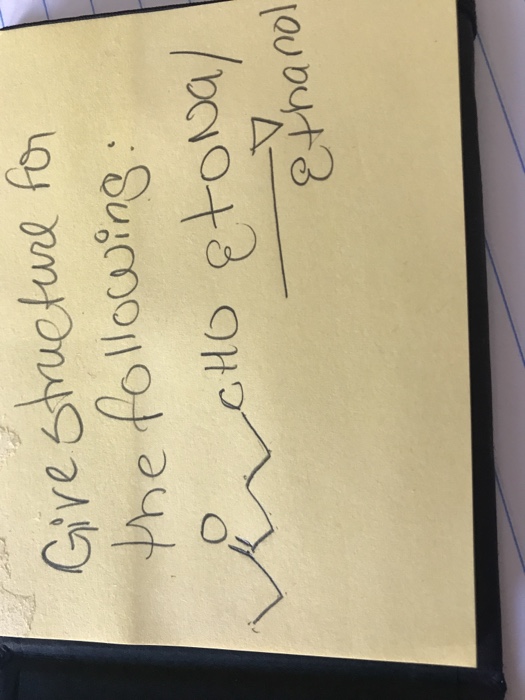 Give structure for
the following:
O
CHO EtONa/
Δ
Ethanol